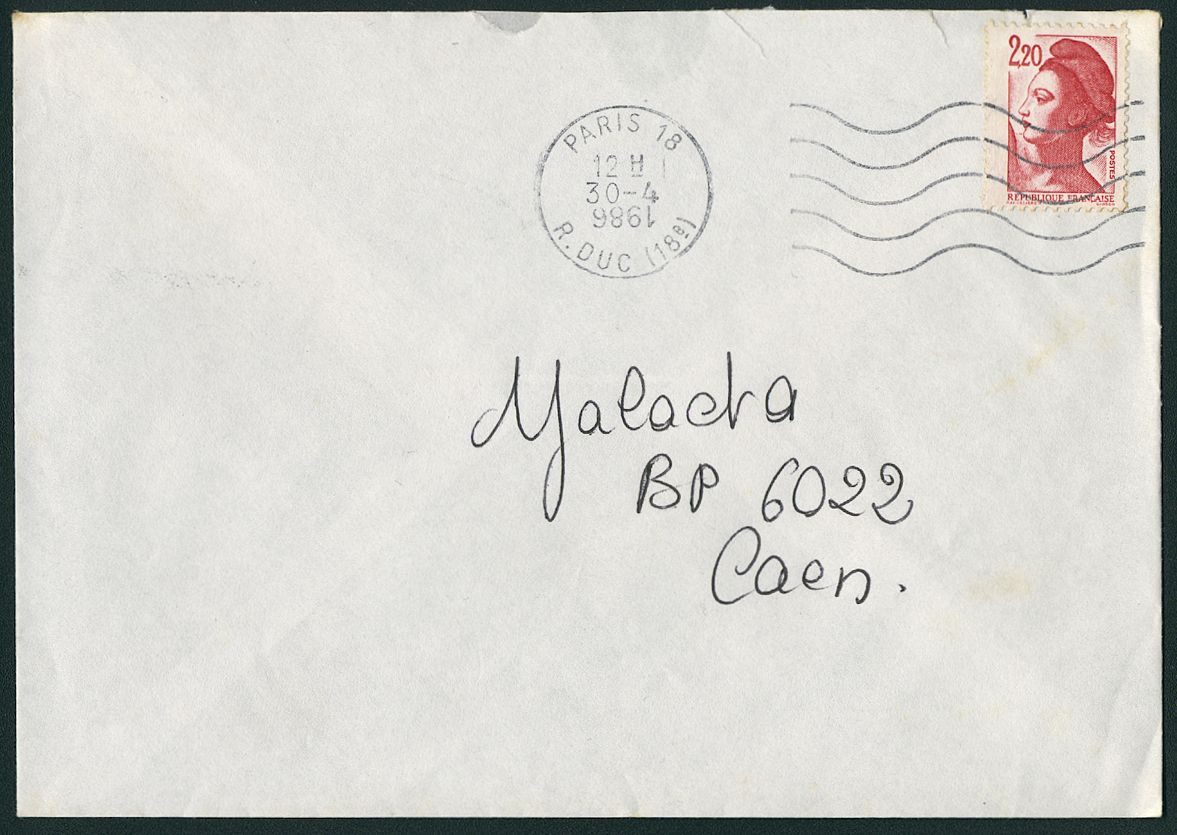 2,20
POSTES
REPUBLIQUE FRANÇAISE
PARIS 18
12 H
30-4
1986
R. DUC (18e)
Malacta
BP 6022
Caen.